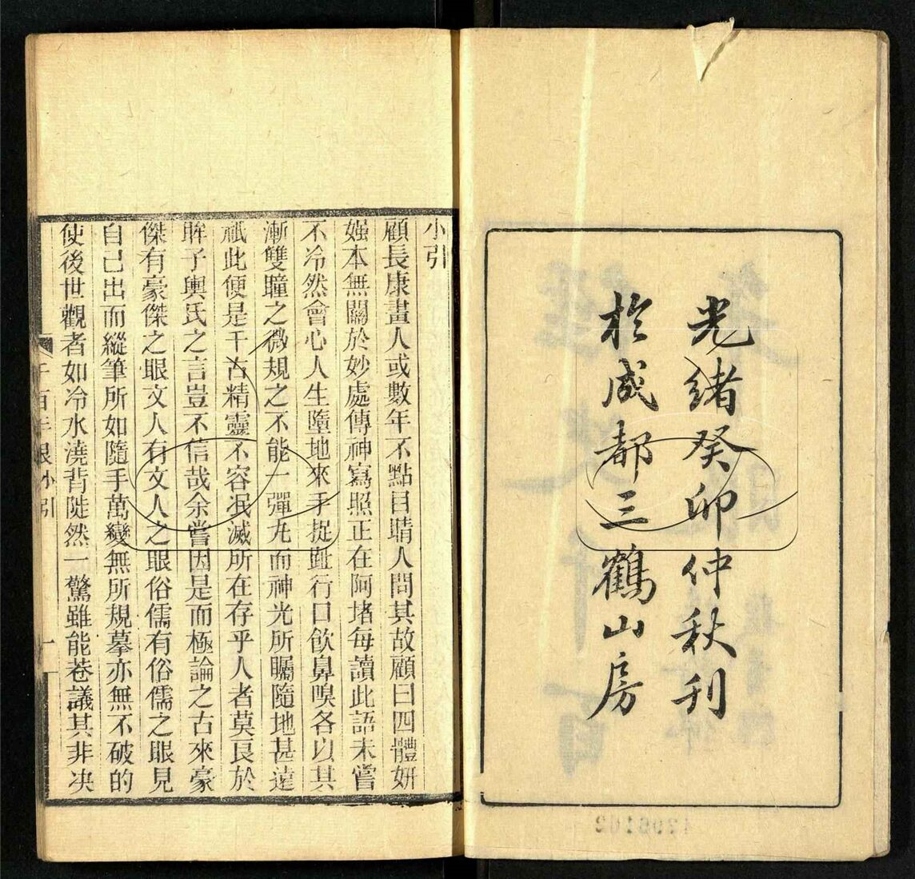 光緒癸卯仲秋刊
於成都三鶴山房
小引
顧長康畫人或數年不點目睛人問其故顧曰四體妍
媸本無關於妙處傳神寫照正在阿堵每讀此語未嘗
不冷然會心人生墮地來手捉趾行口飲鼻嗅各以其
漸雙瞳之微規之不能一彈丸而神光所矚隨地甚遠
祇此便是千古精靈不容泯滅所在存乎人者莫良於
眸子輿氏之言豈不信哉余嘗因是而極論之古來豪
傑有豪傑之眼文人有文人之眼俗儒有俗儒之眼見
自己出而縱筆所如隨手萬變無所規摹亦無不破的
使後世觀者如冷水澆背陡然一驚雖能巷議其非决
千百年眼小引
一